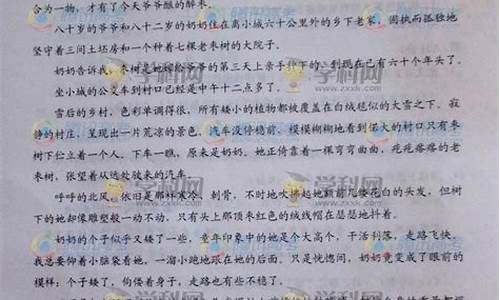 合为一物，才有了今天爷爷酿的醉枣。
八十岁的爷爷和八十二岁的奶奶住在离小城六十公里外的乡下老家，固执而孤独地
坚守着三间土坯房和一个种着七棵老枣树的大院子。
奶奶告诉我，枣树是她嫁给爷爷的第三天上亲手种下的，到现在已有六十个年头了。
坐小城的公交车到村口已经是中午十二点多了。
雪后的乡村，色彩单调得很，所有矮小的植物都被覆盖在白绒毯似的大雪之下。寂
静的村庄，呈现出一片荒凉的景色。汽车没停稳前，模模糊糊地看到偌大的村口只有老枣
树下伫立着一个人。下车一瞧，原来是奶奶。她正倚靠着一棵弯弯曲曲、疙疙瘩瘩的老
枣树，张望着从远处驶来的汽车。
呼呼的北风，依旧是那样凛冽、刺骨，不时地吹拂起她额前几缕花白的头发，但树
下的她却像雕塑般一动不动。只有头上那顶枣红色的绒线帽在瑟瑟地抖着。
奶奶的个子似乎又矮了一些，童年印象中的她是个大高个，干活利落，走路飞快，
我总要仰着小脑袋看她，一溜小跑地跟在她的后面。只是恍惚间，奶奶竟变成了眼前的
模样：个子矮了，佝偻着身子，走路也有些不稳了。
学科网
www.zxxk.com
学科网
www.zxxk.com
学科网
腾讯教育